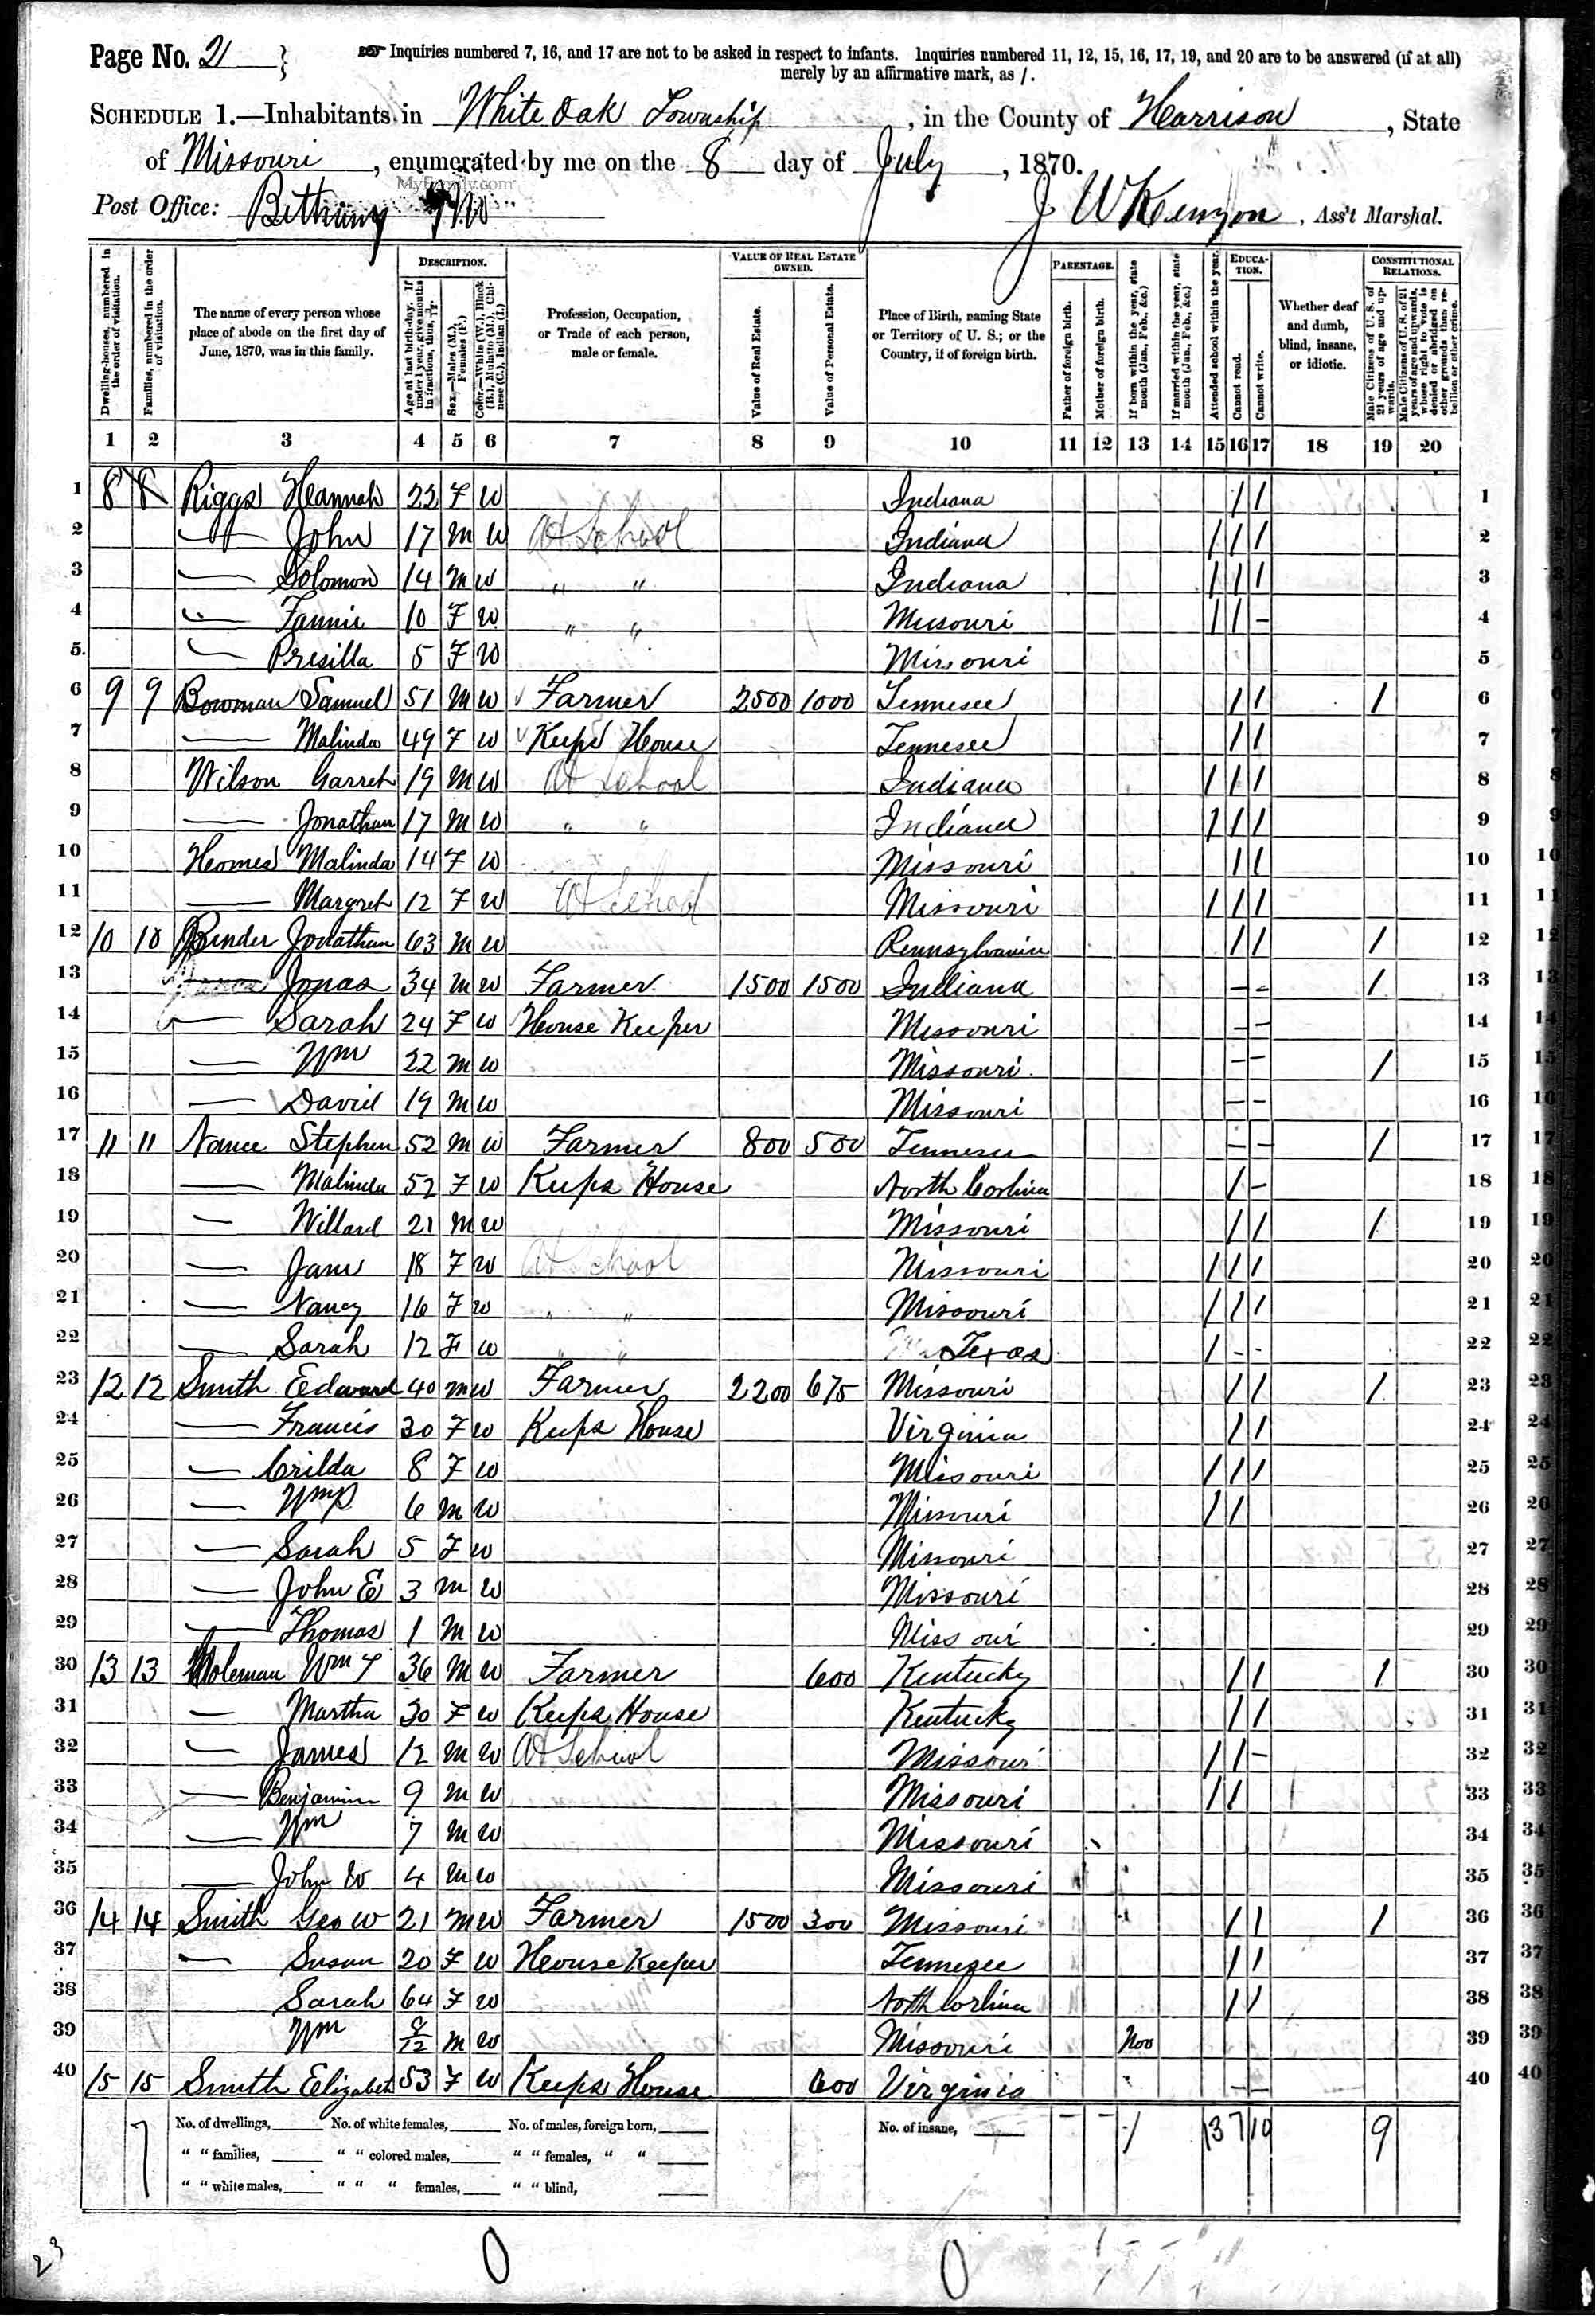 Page No. 21
Inquiries numbered 7, 16, and 17 are not to be asked in respect to infants. Inquiries numbered 11, 12, 15, 16, 17, 19, and 20 are to be answered (if at all)
merely by an affirmative mark, as /.
SCHEDULE 1.—Inhabitants in White Oak Township, in the County of Harrison, State
of Missouri, enumerated by me on the 8 day of July, 1870.
MyFamily.com
Post Office: Bethany Mo J W Kenyon, Ass't Marshal.
Dwelling-houses, numbered in the order of visitation.
Families, numbered in the order of visitation.
The name of every person whose place of abode on the first day of June, 1870, was in this family.
DESCRIPTION.
Age at last birth-day. If under 1 year, give months in fractions, thus, 3/12.
Sex.—Males (M.), Females (F.)
Color.—White (W.), Black (B.), Mulatto (M.), Chinese (C.), Indian (I.)
Profession, Occupation, or Trade of each person, male or female.
VALUE OF REAL ESTATE OWNED.
Value of Real Estate.
Value of Personal Estate.
Place of Birth, naming State or Territory of U. S.; or the Country, if of foreign birth.
PARENTAGE.
Father of foreign birth.
Mother of foreign birth.
If born within the year, state month (Jan., Feb., &c.)
If married within the year, state month (Jan., Feb., &c.)
Attended school within the year.
EDUCATION.
Cannot read.
Cannot write.
Whether deaf and dumb, blind, insane, or idiotic.
CONSTITUTIONAL RELATIONS.
Male Citizens of U. S. of 21 years of age and upwards.
Male Citizens of U. S. of 21 years of age and upwards, whose right to vote is denied or abridged on other grounds than rebellion or other crime.
1 2 3 4 5 6 7 8 9 10 11 12 13 14 15 16 17 18 19 20
1 8 8 Riggs Heannah 22 F W Indiana / / 1
2 — John 17 M W At School Indiana / / / 2
3 — Solomon 14 M W " " Indiana / / / 3
4 — Fannie 10 F W " " Missouri / / - 4
5 — Presilla 5 F W Missouri 5
6 9 9 Bowman Samuel 51 M W Farmer 2500 1000 Tennesee / / / 6
7 — Malinda 49 F W Keeps House Tennesee / / 7
8 Wilson Garret 19 M W At School Indiana / / / 8
9 — Jonathan 17 M W " " Indiana / / / 9
10 Heomes Malinda 14 F W Missouri / / 10
11 — Margret 12 F W At School Missouri / / / 11
12 10 10 Binder Jonathan 63 M W Pennsylvania / / / 12
13 Jonas 34 M W Farmer 1500 1500 Indiana - - / 13
14 — Sarah 24 F W House Keeper Missouri - - 14
15 — Wm 22 M W Missouri - - / 15
16 — David 19 M W Missouri - - 16
17 11 11 Nance Stephen 52 M W Farmer 800 500 Tennesee - - / 17
18 — Malinda 52 F W Keeps House North Corlina / - 18
19 — Willard 21 M W Missouri / / / 19
20 — Jane 18 F W At School Missouri / / / 20
21 — Nancy 16 F W " " Missouri / / / 21
22 — Sarah 12 F W " " Texas / - - 22
23 12 12 Smith Edward 40 M W Farmer 2200 675 Missouri / / / 23
24 — Francis 30 F W Keeps House Virginia / / 24
25 — Crilda 8 F W Missouri / / / 25
26 — Wm P 6 M W Missouri / / 26
27 — Sarah 5 F W Missouri 27
28 — John E 3 M W Missouri 28
29 — Thomas 1 M W Missouri 29
30 13 13 Moleman Wm T 36 M W Farmer 600 Kentucky / / / 30
31 — Martha 30 F W Keeps House Kentucky / / 31
32 — James 12 M W At School Missouri / / - 32
33 — Benjamin 9 M W Missouri / / 33
34 — Wm 7 M W Missouri 34
35 — John W 4 M W Missouri 35
36 14 14 Smith Geo W 21 M W Farmer 1500 300 Missouri / / / 36
37 — Susan 20 F W House Keeper Tennesee / / 37
38 Sarah 64 F W North Corlina / / 38
39 Wm M W Missouri Nov 39
40 15 15 Smith Elizabet 53 F W Keeps House 600 Virginia - - 40
No. of dwellings, No. of white females, No. of males, foreign born, No. of insane, - - / 13 7 10 9
" " families, " " colored males, " " females, " "
" " white males, " " " females, " " blind,
0 0
23